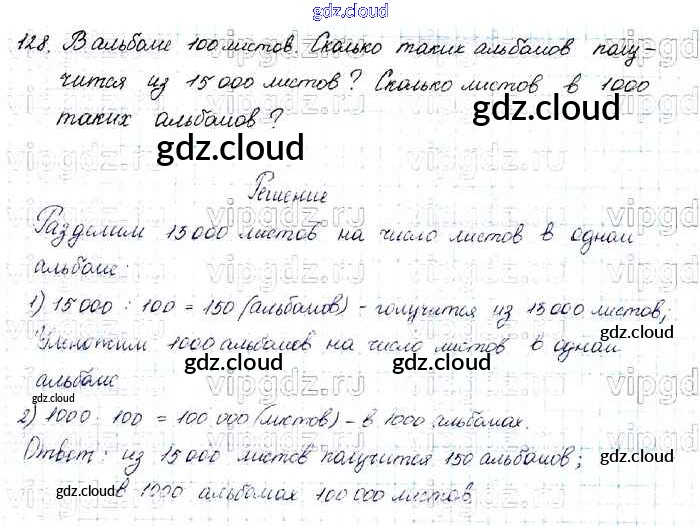 gdz.cloud
128. В альбоме 100 листов. Сколько таких альбомов полу-
чится из 15 000 листов? Сколько листов в 1000
таких альбомов?
gdz.cloud
gdz.cloud
Решение
Разделим 15000 листов на число листов в одном
альбоме:
1) 15 000 : 100 = 150 (альбомов) - получится из 15000 листов;
gdz.cloud
Умножим 1000 альбомов на число листов в одном
gdz.cloud gdz.cloud
альбоме
gdz.cloud
2) 1000 · 100 = 100 000 (листов) - в 1000 альбомах.
Ответ: из 15 000 листов получится 150 альбомов;
gdz.cloud
gdz.cloud в 1000 альбомах 100 000 листов
gdz.cloud
vipgdz.ru